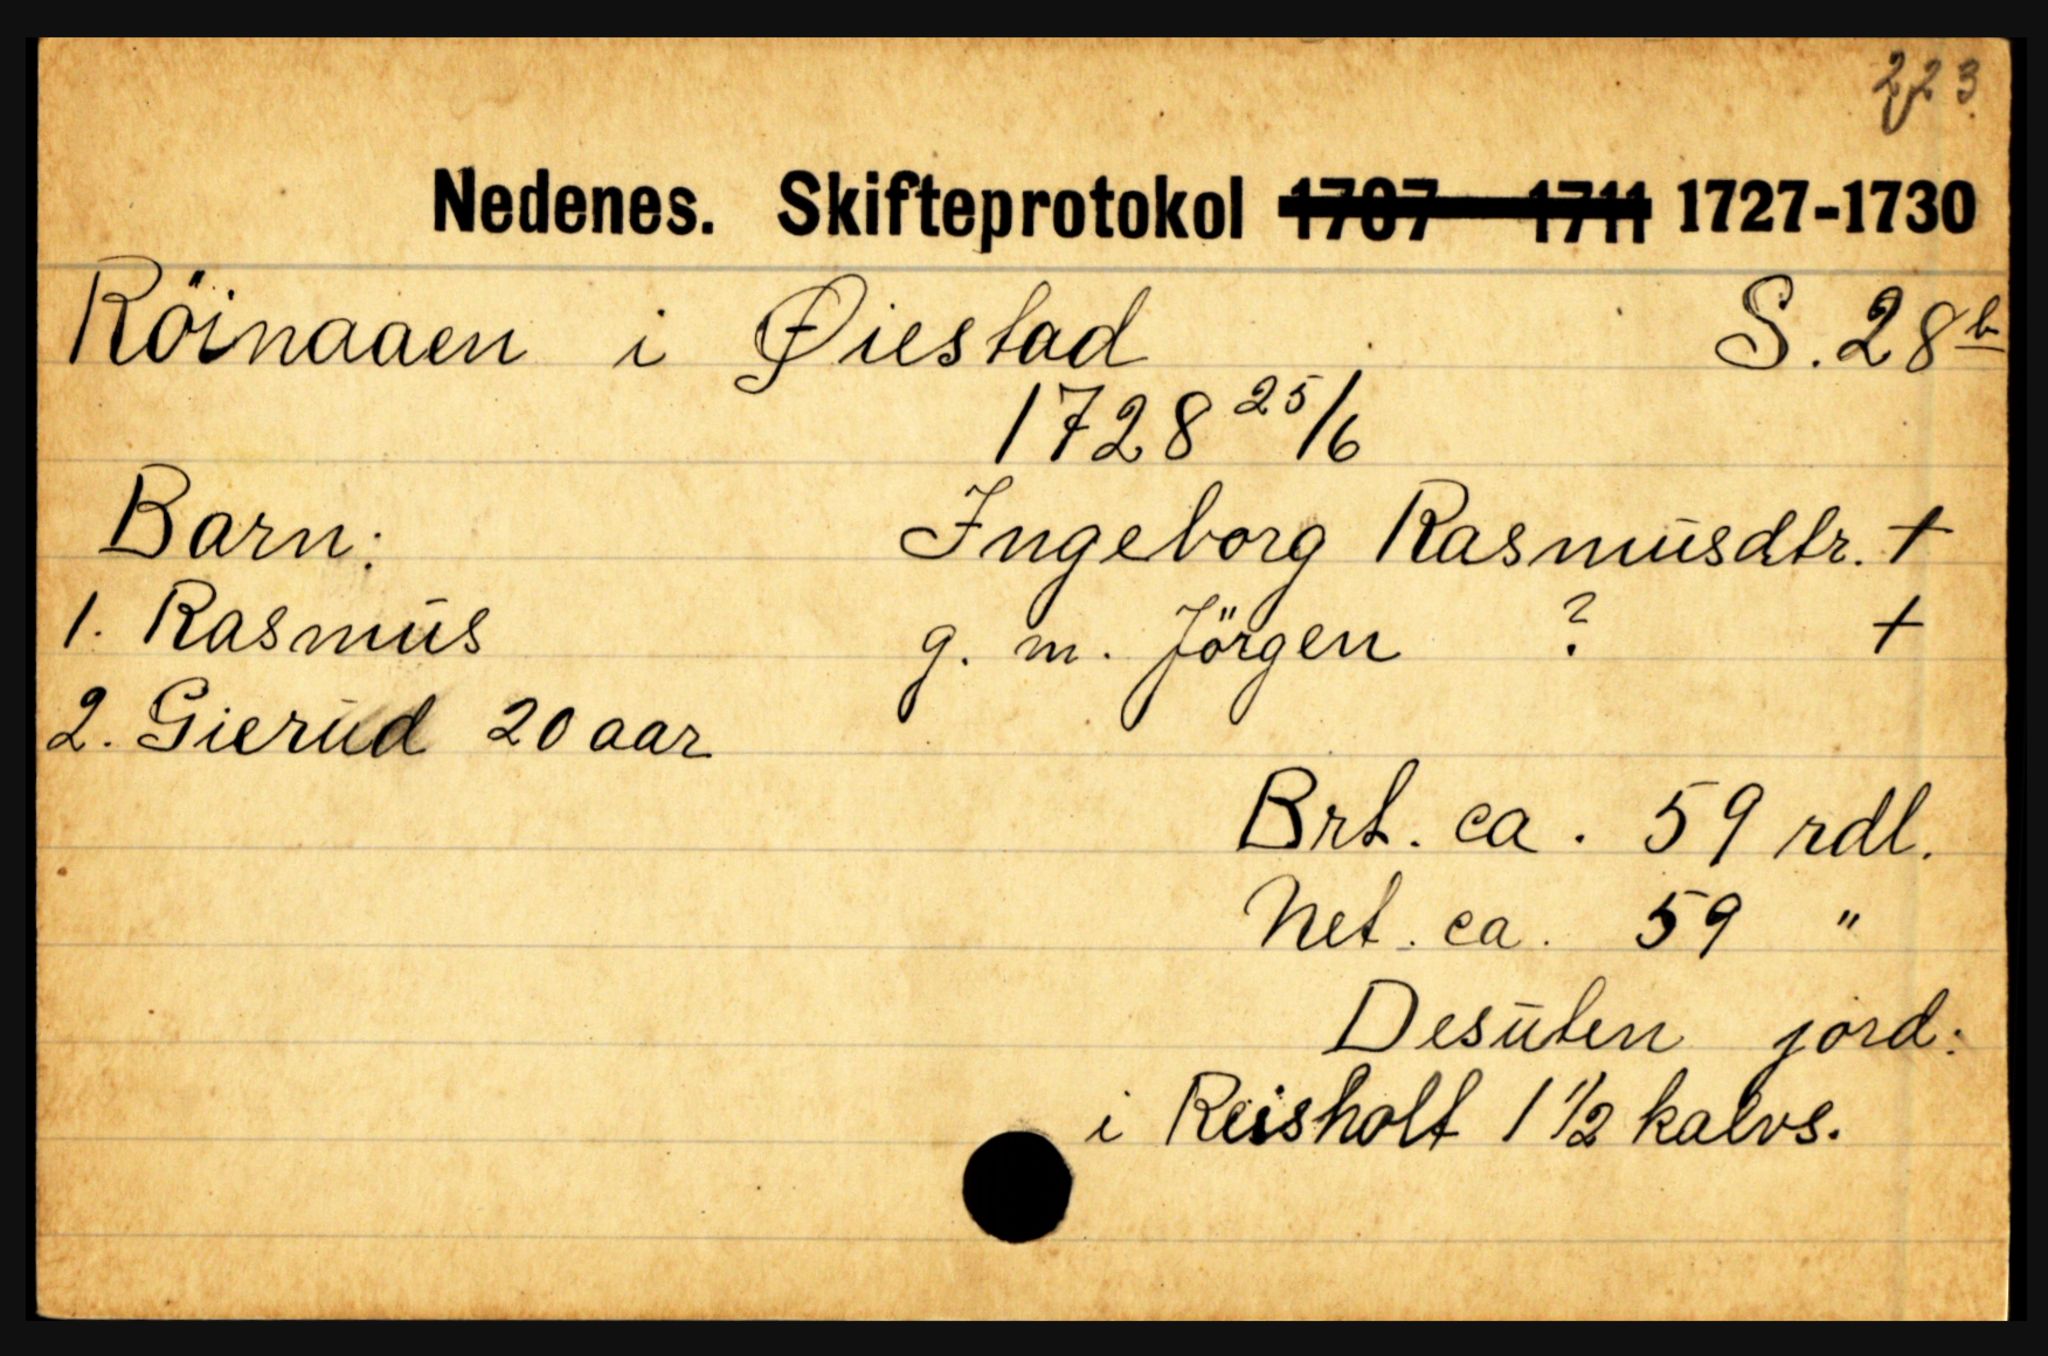 223
Nedenes. Skifteprotokol 1707-1711 1727-1730
Röinaaen i Øiestad S. 28b
1728 25/6
Barn: Ingeborg Rasmusdtr. +
1. Rasmus g. m. Jörgen ? +
2. Gierud 20 aar
Brt. ca. 59 rdl.
Net. ca. 59 "
Desuten jord:
i Reisholt 1 1/2 kalvs.